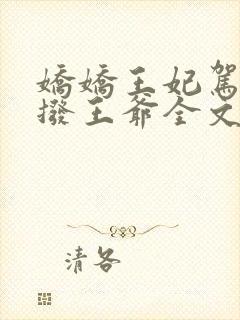 嬌嬌王妃駕
撥王爺全文
清各